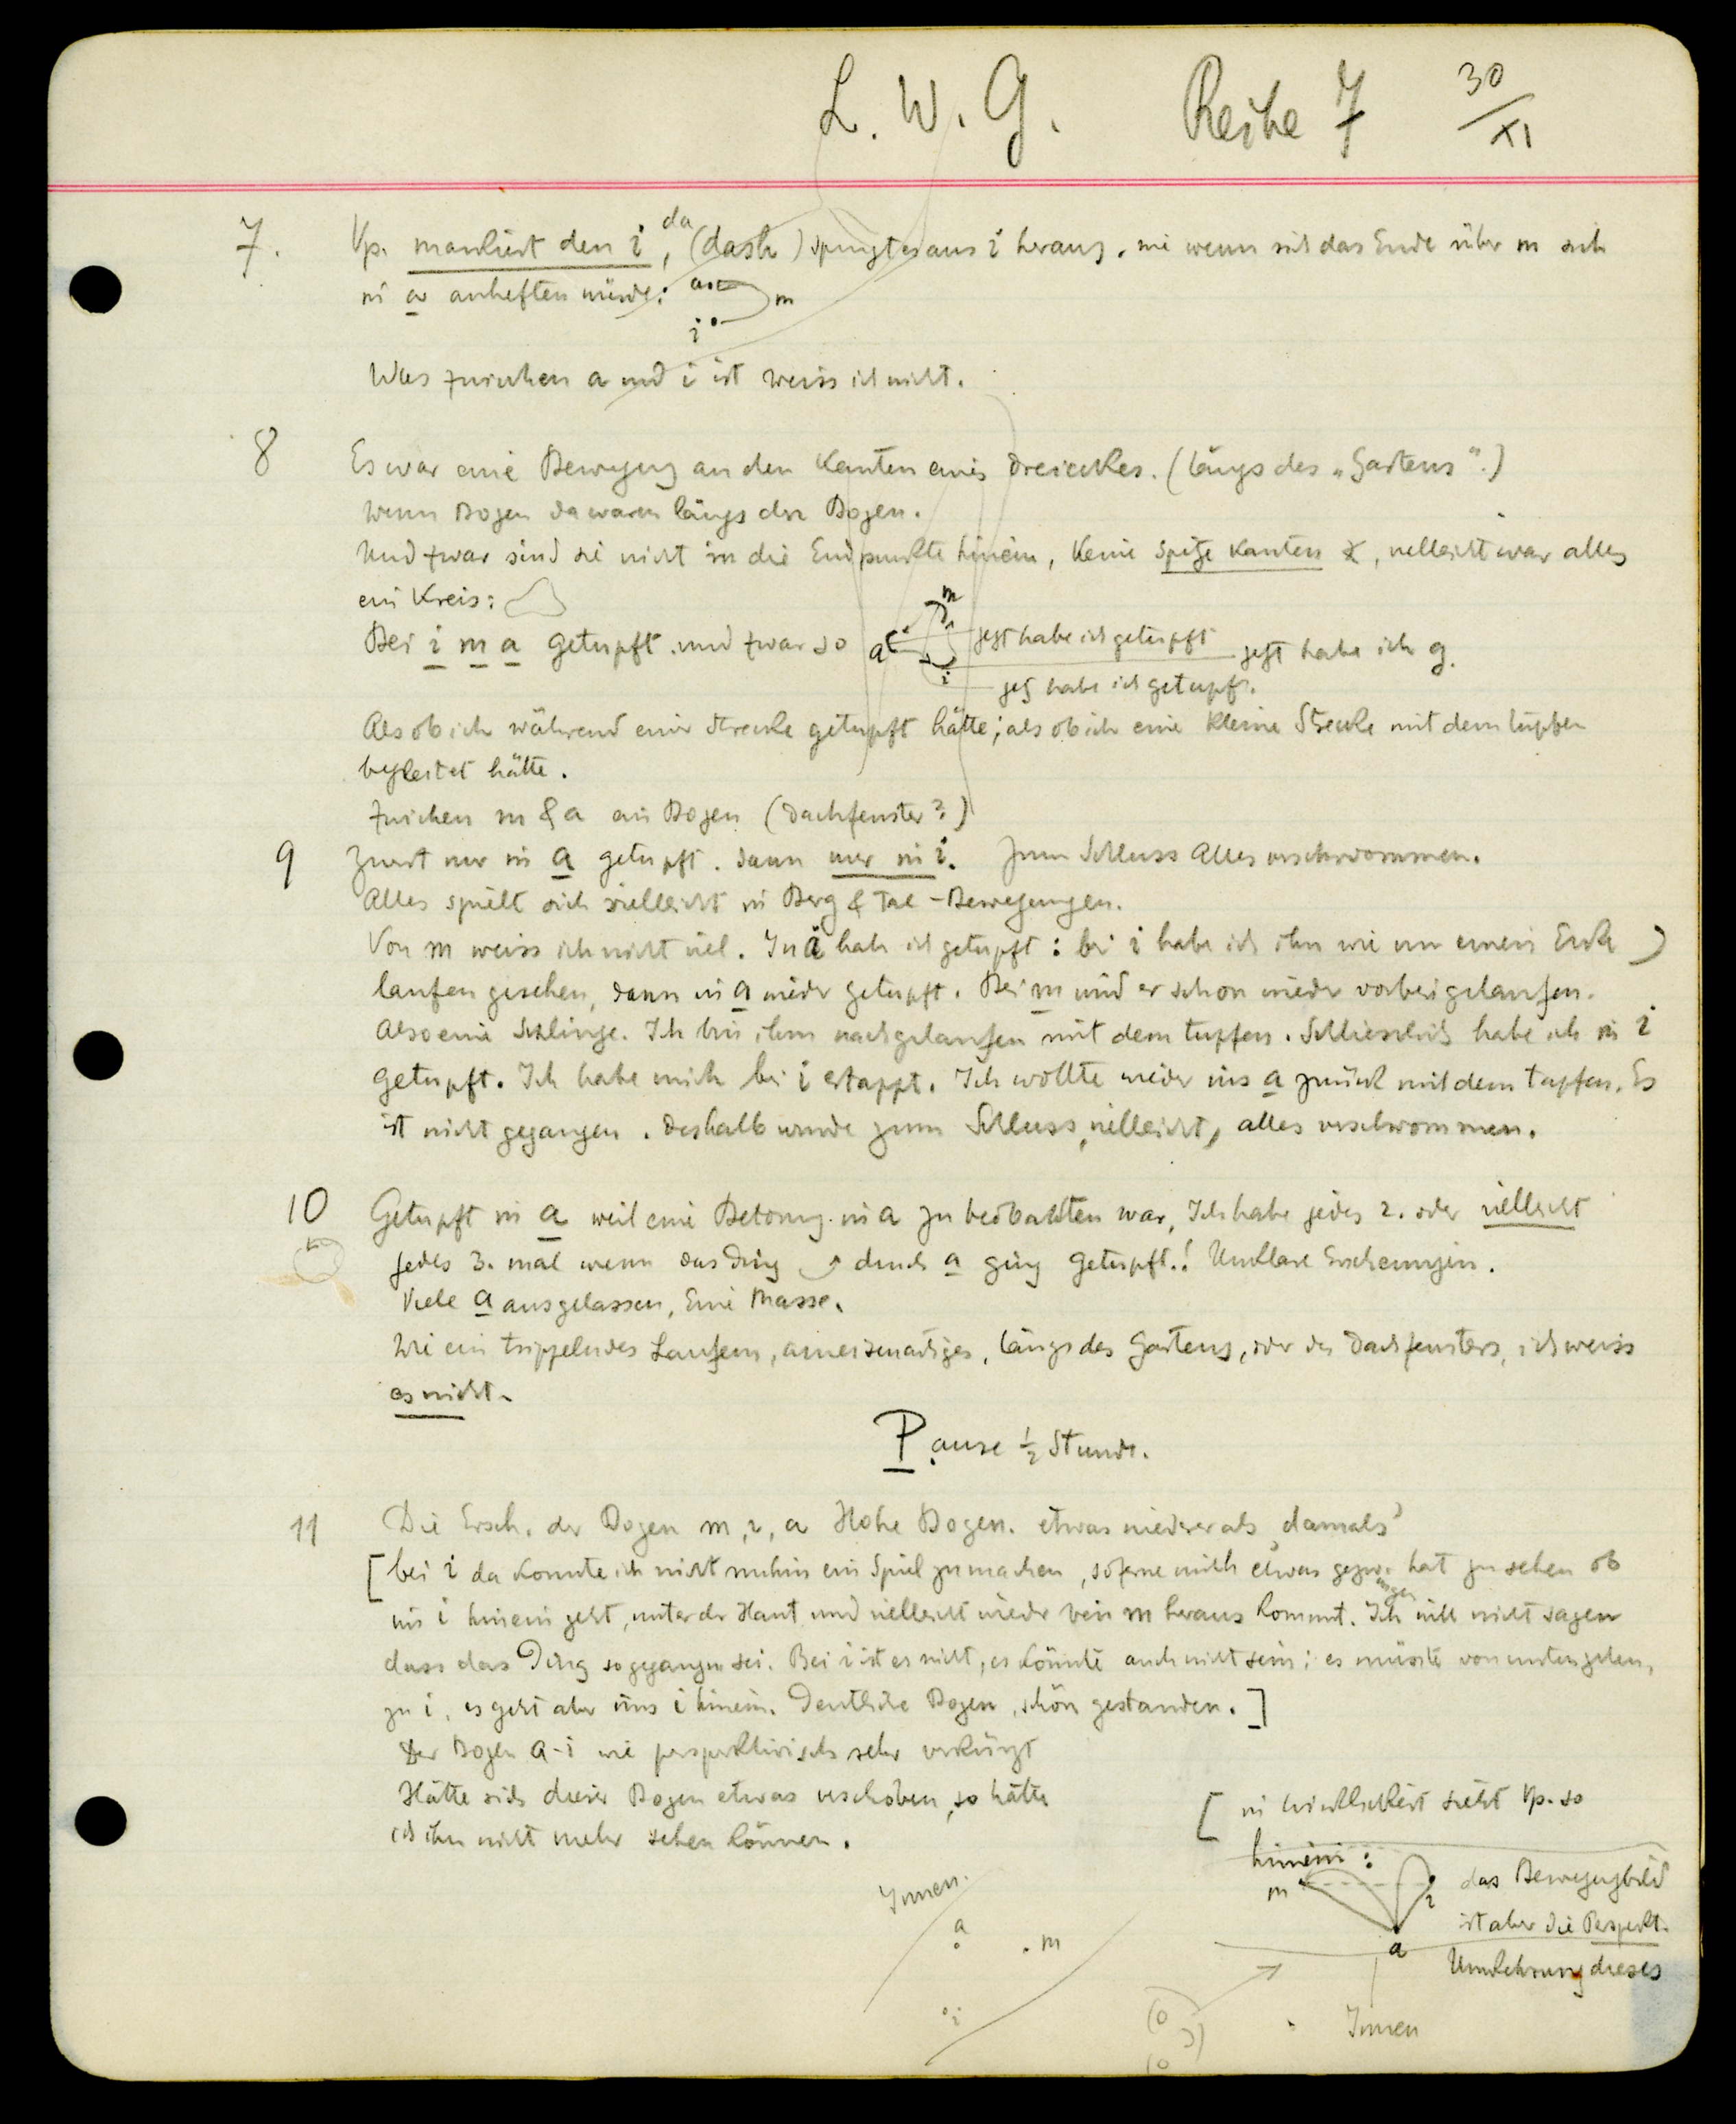 L. W. G. Reihe 7 30/XI
7. Vp. markiert den i, da (dash) springt es aus i heraus, wie wenn sich das Ende über m sich
in a anheften würde: a m
i
Was zwischen a und i ist weiss ich nicht.
8 Es war eine Bewegung an den Kanten eines Dreieckes. (längs des „Gartens".)
Wenn Bogen da waren längs der Bogen.
Und zwar sind sie nicht in die Endpunkte hinein, keine spitze Kanten, vielleicht war alles
ein Kreis:
Bei i m a getupft und zwar so a m i jetzt habe ich getupft jetzt habe ich g.
jetz habe ich getupft.
Als ob ich während einer Strecke getupft hätte; als ob ich eine kleine Strecke mit dem tupfen
begleitet hätte.
Zwichen m & a ein Bogen (Dachfenster?)
9 Zuerst nur in a getupft. Dann nur in i. Zum Schluss Alles verschwommen.
Alles spielt sich vielleicht in Berg & Tal-Bewegungen.
Von m weiss ich nicht viel. In a hab ich getupft: bei i habe ich ihn wie um einen Ecke
laufen gesehen, dann in a wieder getupft. Bei m wird er schon wieder vorbeigelaufen.
Also eine Schlinge. Ich bin ihm nachgelaufen mit dem tupfen. Schliesslich habe ich in i
getupft. Ich habe mich bei i ertappt. Ich wollte wieder ins a zurück mit dem tupfen. Es
ist nicht gegangen. Deshalb wurde zum Schluss, vielleicht, alles verschwommen.
10 Getupft in a weil eine Betonung in a zu beobachten war, Ich habe jedes 2. oder vielleicht
jedes 3. mal wenn das Ding durch a ging getupft.! Unklare Erscheinungen.
Viele a ausgelassen, Eine Masse.
Wie ein trippelndes Laufen, ameisenartiges, längs des Gartens, oder des Dachfensters, ich weiss
es nicht.
Pause ½ Stunde.
11 Die Ersch. der Bogen m, i, a Hohe Bogen. etwas niederer als „damals"
[bei i da konnte ich nicht umhin ein Spiel zu machen, soferne mich etwas gezwungen hat zu sehen ob
ins i hinein geht, unter der Haut und vielleicht wieder bein m heraus kommt. Ich will nicht sagen
dass das Ding so gegangen sei. Bei i ist es nicht, es könnte auch nicht sein; es müsste von unten gehen,
zu i, es geht aber ins i hinein. Deutliche Bogen, schön gestanden.]
Der Bogen a-i wie perspektivisch sehr verkürzt
Hätte sich dieser Bogen etwas verschoben, so hätte
ich ihn nicht mehr sehen können.
[in Wirklichkeit sieht Vp. so
hinein:
m i a
das Bewegungbild
ist aber die Perspekt.
Umkehrung dieses
Innen
Innen.
a
m
i